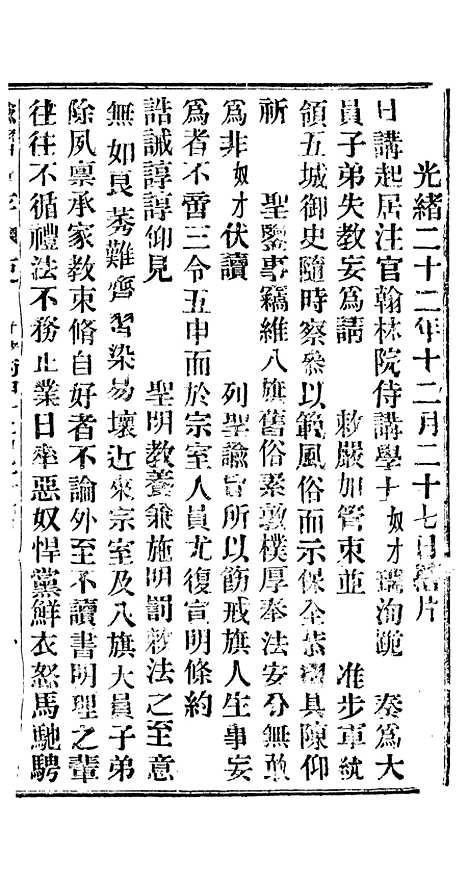 光緒二十二年十二月二十七日 片
日講起居注官翰林院侍講學士奴才瑞洵跪 奏爲大
員子弟失教妄爲請 敕嚴加管束並 准步軍統
領五城御史隨時察參以範風俗而示保全恭摺具陳仰
祈 聖鑒事竊維八旗舊俗素敦樸厚奉法安分無敢
爲非奴才伏讀 列聖諭旨所以飭戒旗人生事妄
爲者不啻三令五申而於宗室人員尤復宣明條約
誥誡諄諄仰見 聖明教養兼施明罰敕法之至意
無如良莠難齊習染易壞近來宗室及八旗大員子弟
除夙稟承家教束脩自好者不論外至不讀書明理之輩
往往不循禮法不務正業日率惡奴悍黨鮮衣怒馬馳騁